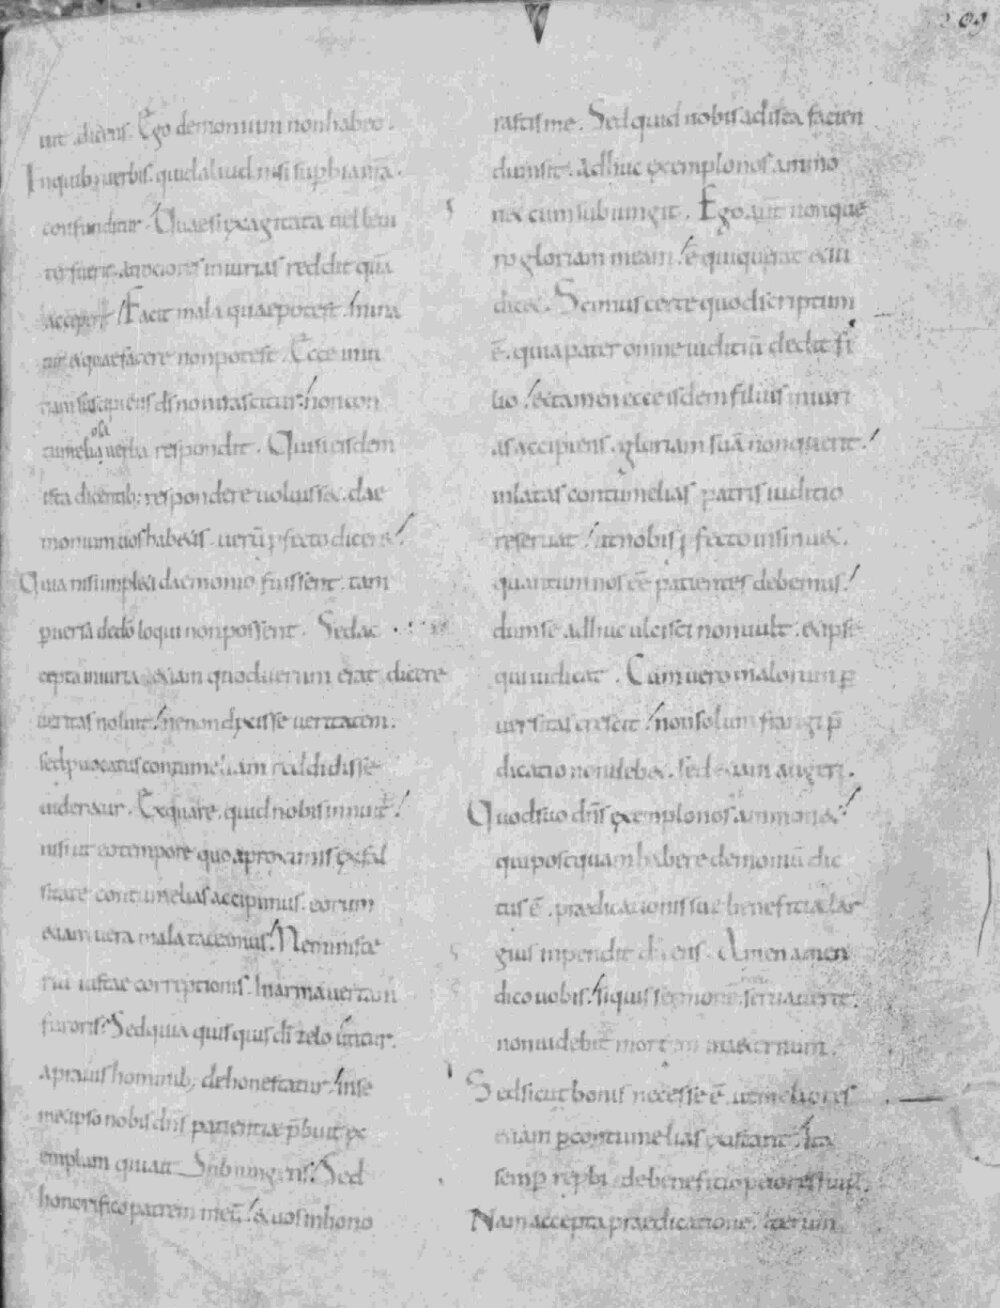 209
uit. dicens. Ego demonium non habeo.
In quib; uerbis. quid aliud nisi supbia nr̄a.
confunditur. Quae si exagitata uel leui
ter fuerit. atrociores iniurias reddit quā
acceperit. Facit mala quae potest. mina
tur et quae facere non potest. Ecce iniu
riam suscipiens dn̄s non irascitur. non con
tumeliosa uerba respondit. Qui si eisdem
ista dicentib; respondere uoluisset. dae
monium uos habetis. uerū ꝓfecto diceret.
Quia nisi impleti daemonio fuissent. tam
ꝑuersa de dō loqui non possent. Sed ac
cepta iniuria. etiam quod uerum erat dicere
ueritas noluit. ne non dixisse ueritatem.
sed ꝓuocatus contumeliam reddidisse
uideretur. Ex qua re. quid nobis innuit.
nisi ut eo tempore quo a proximis ex fal
sitate contumelias accipimus. eorum
etiam uera mala taceamus. Ne ministe
rium iustae correptionis. In arma uertam
furoris. Sed quia quisquis dī zelo utitur.
a prauis hominib; dehonestatur. in se
metipso nobis dn̄s patientiae p̄buit ex
emplum qui ait. Subiungens. Sed
honorifico patrem meū. et uos inhono
rastis me. Sed quid nobis ad ista facien
dum sit. adhuc exemplo nos ammo
net cum subiungit. Ego autē non quae
ro gloriam meam. ē qui querat et iu
dicet. Scimus certe quod scriptum
ē. quia pater omne iuditiū dedit fi
lio. et tamen ecce isdem filius iniuri
as accipiens. gloriam suā non querit.
inlatas contumelias patris iuditio
reseruat. ut nobis ꝓfecto insinuet.
quantum nos eē patientes debemus.
dum se adhuc ulcisci non uult. et ipse
qui iudicat. Cum uero malorum ꝑ
uersitas crescit. non solum frangi p̄
dicatio non debet. sed etiam augeri.
Quod suo dn̄s exemplo nos ammonet.
qui postquam habere demoniū dic
tus ē. praedicationis suae beneficia lar
gius inpendit dicens. Amen amen
dico uobis. si quis sermonē seruauerit.
non uidebit mortem in aeternum.
Sed sicut bonis necesse ē. ut meliores
etiam ꝑ contumelias existant. Ita
semp repbi de beneficio peiores fiunt.
Nam accepta praedicatione. iterum